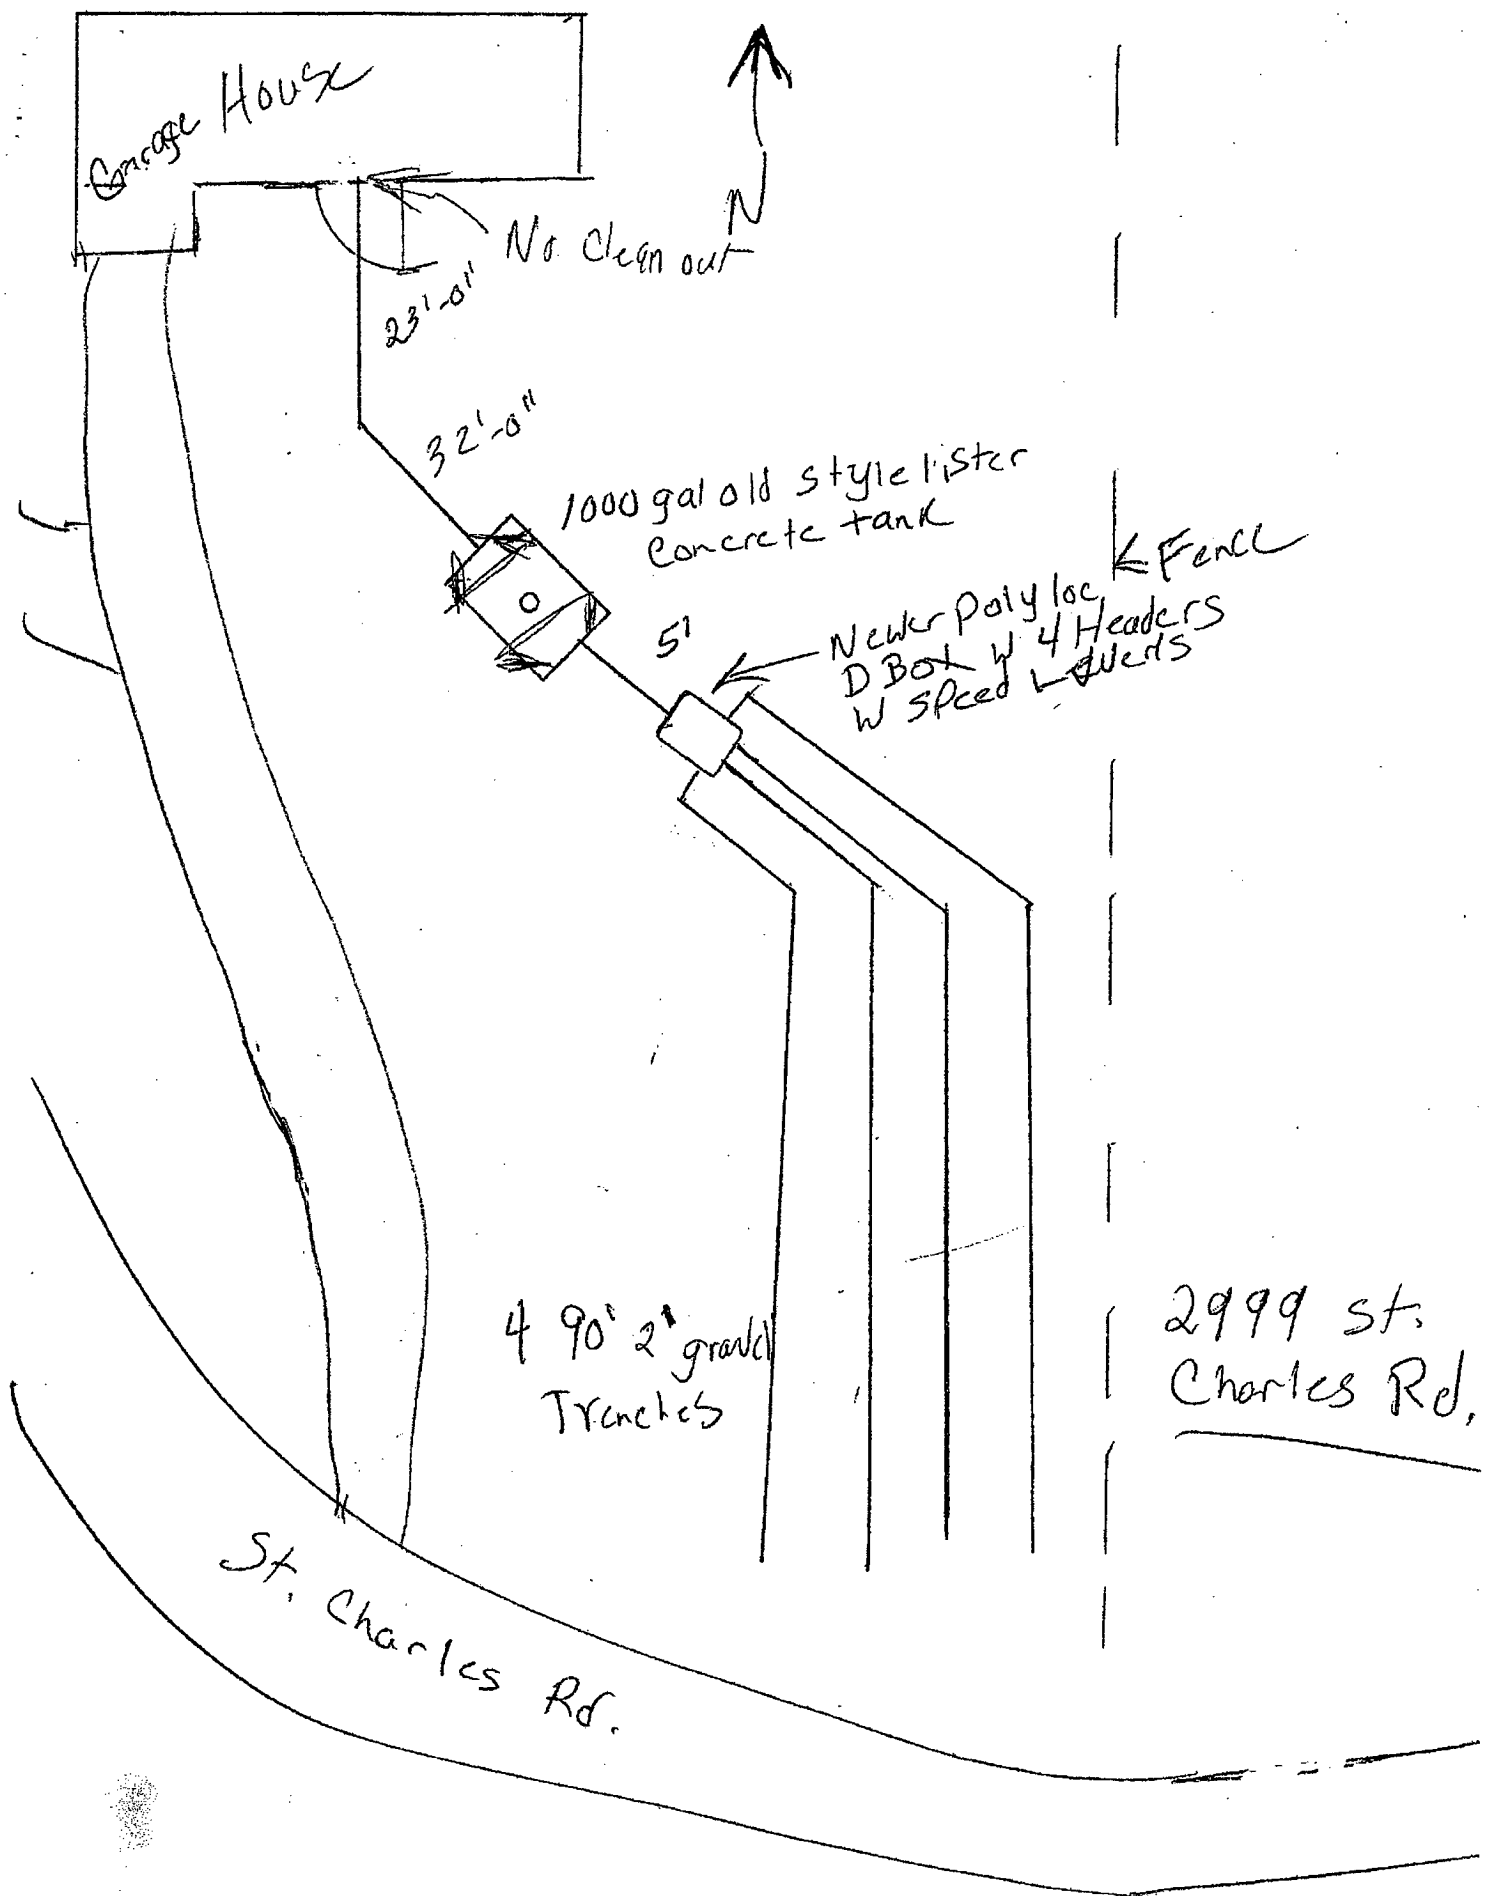 House
Garage
N
No Clean out
23'-0"
32'-0"
1000 gal old style lister
Concrete tank
Fence
5'
Newer Poly loc
D Box W 4 Headers
W Speed
4 90' 2' gravel
Trenches
2999 St.
Charles Rd.
St. Charles Rd.